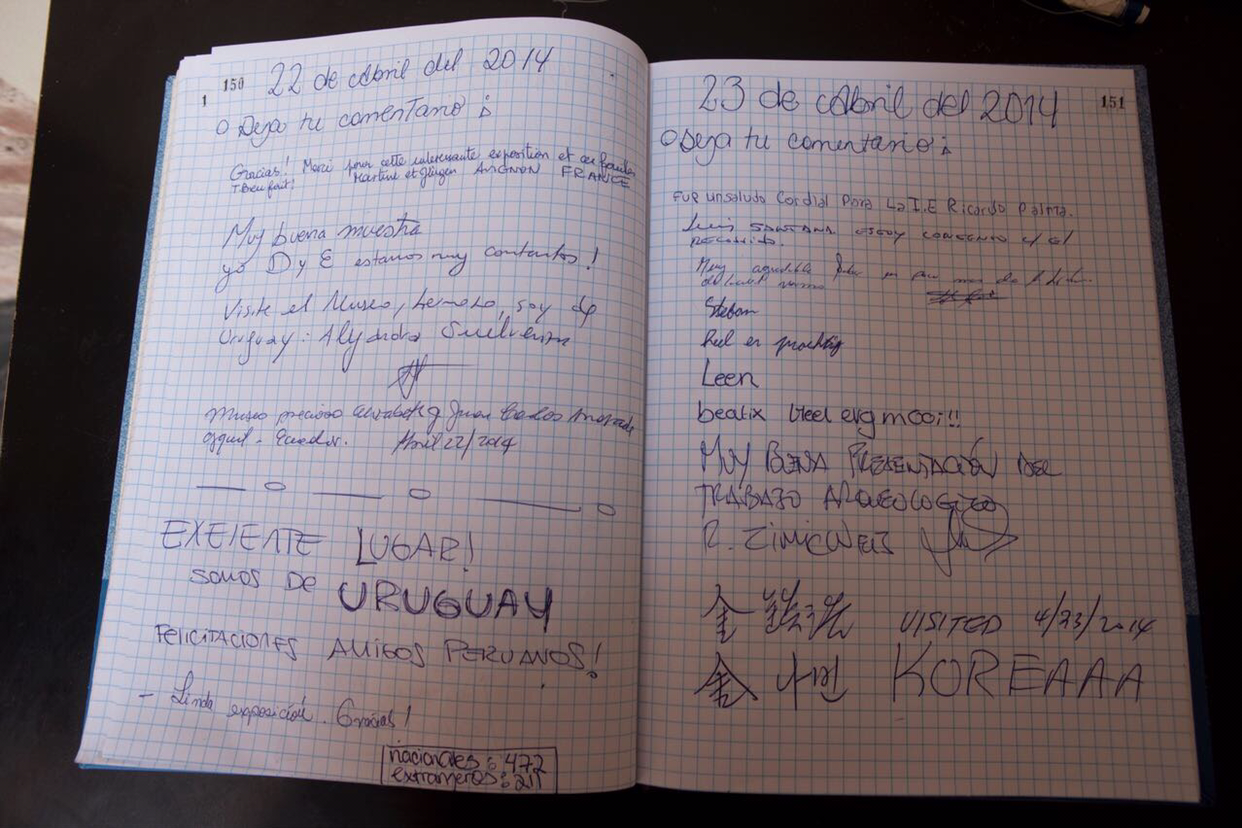 150
1
22 de Abril del 2014
O Deja tu comentario :
Gracias! Merci pour cette interessante exposition et ce
T. Bien fait! Martine et Jürgen AVIGNON FRANCE
Muy buena muestra
yo D y E estamos muy contentos!
Visite el Museo, hermoso, soy de
Uruguay : Alejandra
Museo precioso Elizabeth y Juan Carlos Andrade
Gyquil - Ecuador. Abril 22/2014
EXELENTE LUGAR!
SOMOS DE URUGUAY
FELICITACIONES AMIGOS PERUANOS!
- Linda exposición. Gracias!
nacionales : 472
extranjeros : 211
151
23 de Abril del 2014
O Deja tu comentario :
FUE un saludo Cordial Para La I.E Ricardo Palma.
Luis SANTANA estoy contento c/ el
recorrido.
Muy agradable
Steban
Heel er prachtig
Leen
beatix heel erg mooi!!
MUY BUENA PRESENTACIÓN DEL
TRABAJO ARQUEOLOGICO
R.
金 VISITED 4/23/2014
金 나현 KOREAAA